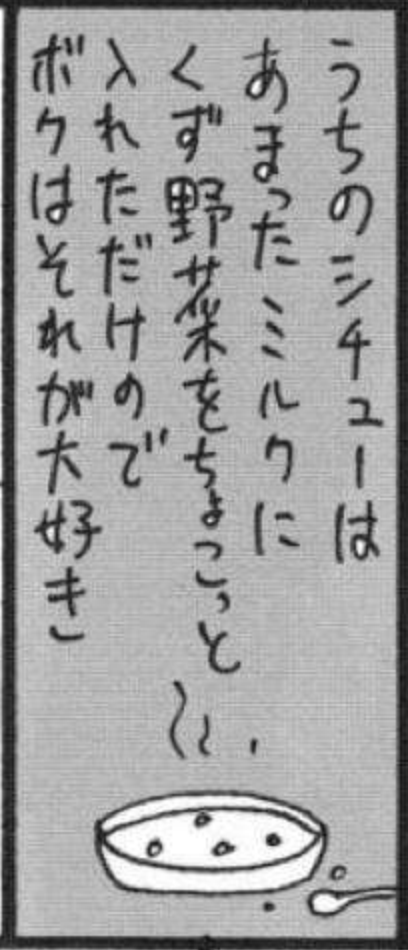 うちのシチューは
あまったミルクに
くず野菜をちょこっと
入れただけので
ボクはそれが大好き